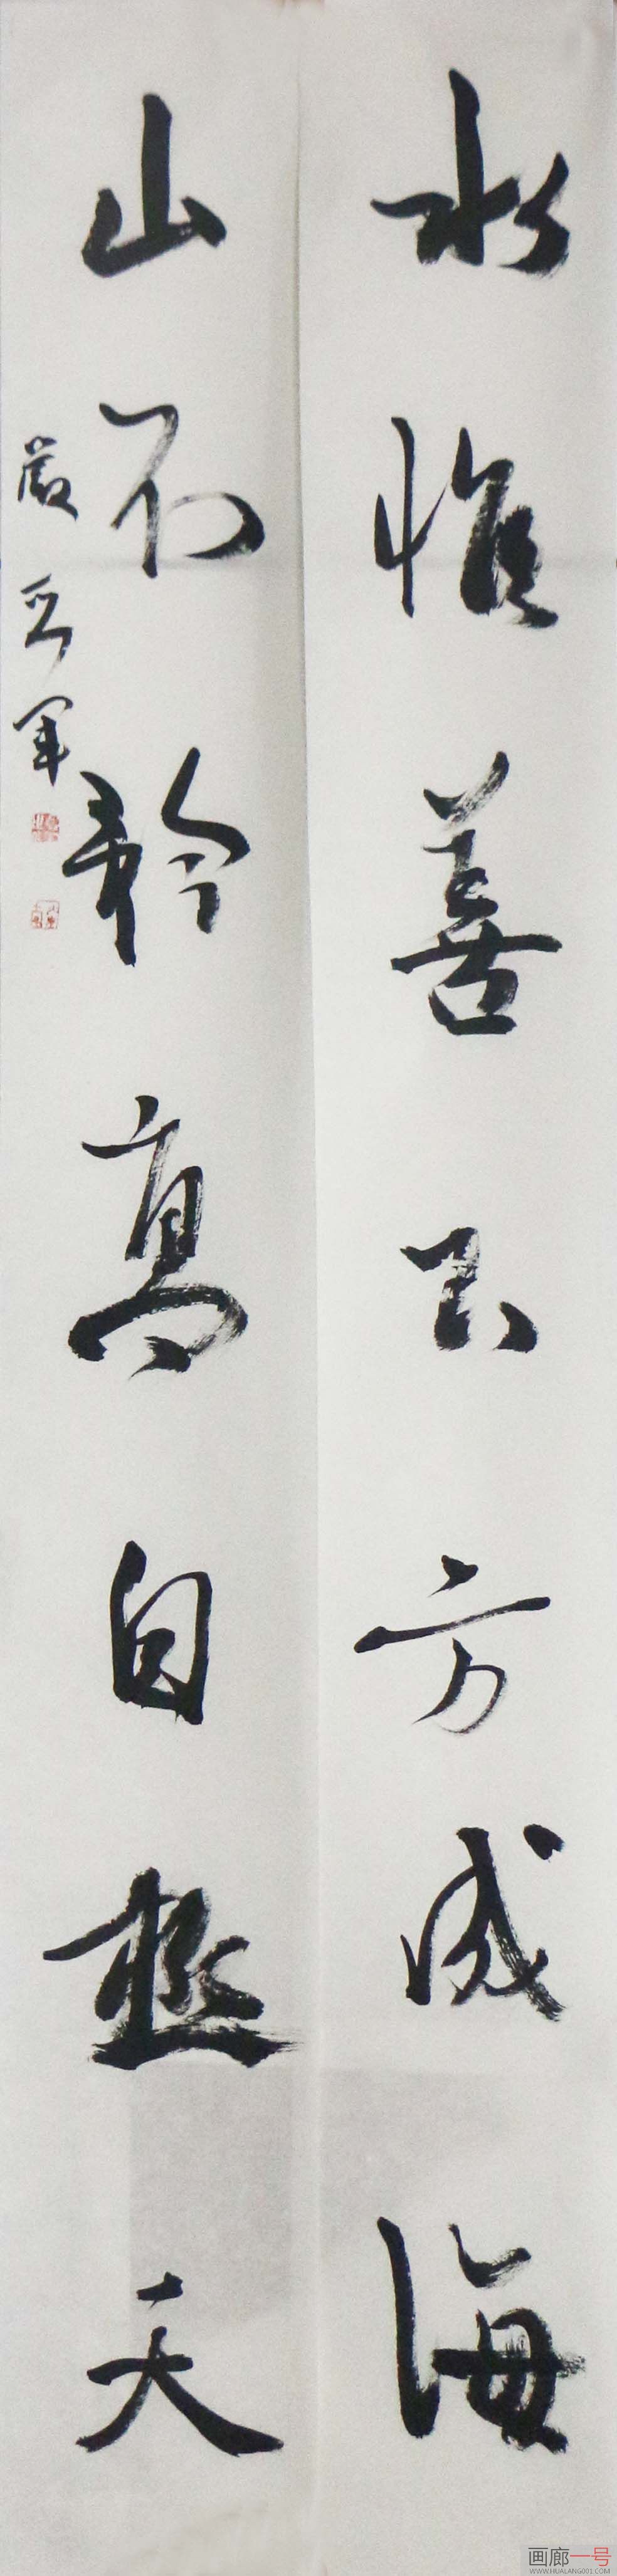 水惟善下方成海
山不矜高自极天
严 军
画廊一号
WWW.HUALANG001.COM